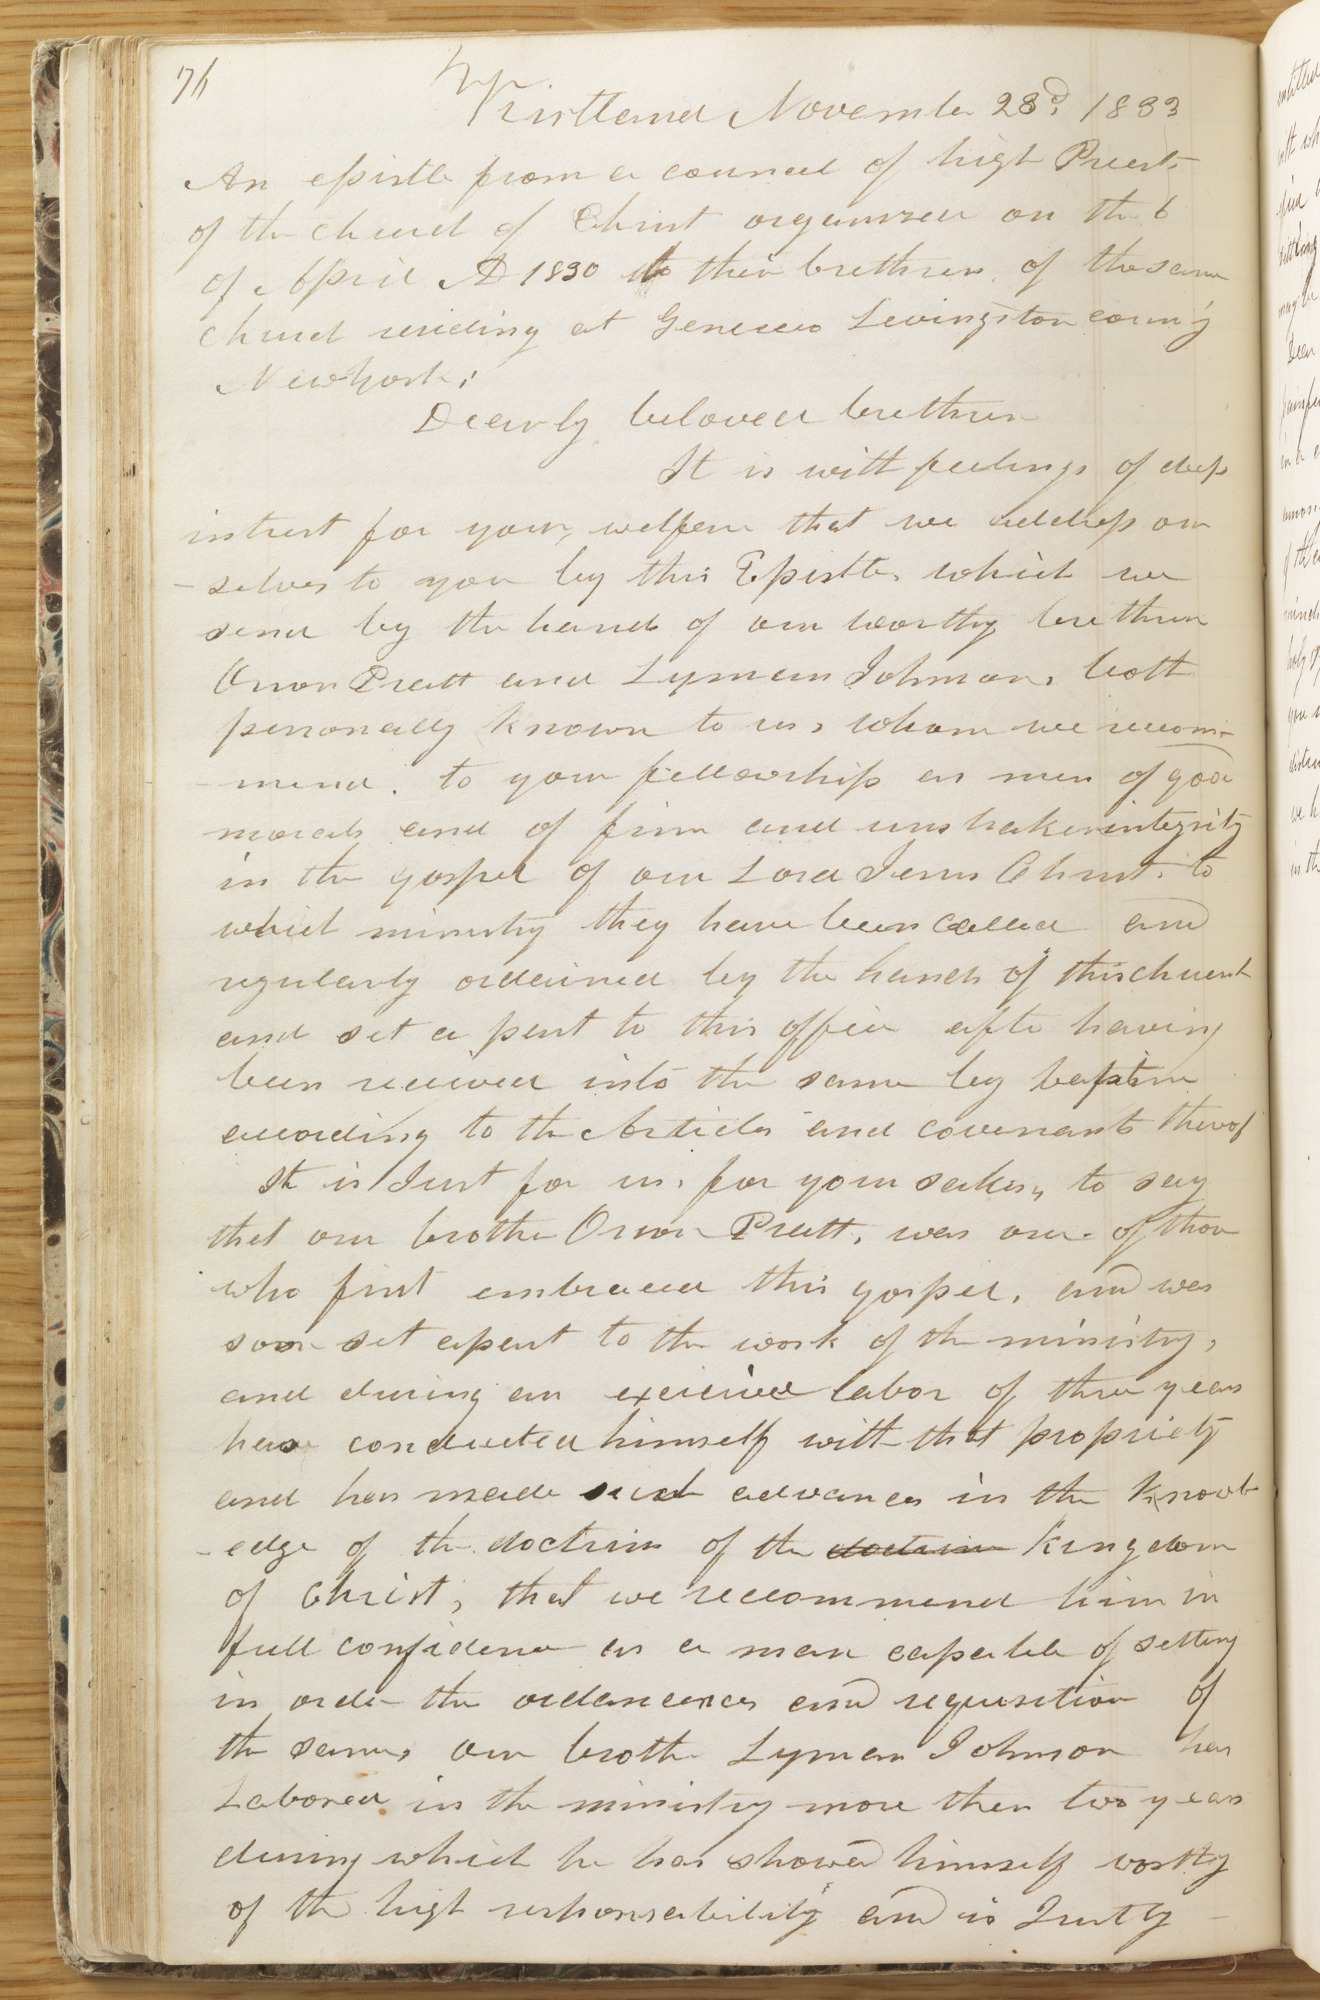 76
Kirtland November 23d, 1833
An epistle from a council of high Priests
of the church of Christ organized on the 6
of April AD 1830 to their brethren of the same
church residing at Geneseo Livingston county
New York;
Dearly beloved brethren
It is with feelings of deep
intrest for your welfare that we address our
-selves to you by this Epistle, which we
send by the hands of our worthy brethren
Orson Pratt and Lyman Johnson, both
personally known to us, whom we recom-
-mend, to your fellowship as men of good
morals and of firm and unshaken integrity
in the gospel of our Lord Jesus Christ, to
which ministry they have been called and
regularly ordained by the hands of this church
and set a part to this office after having
been received into the same by baptism
according to the Articles and covenants thereof
It is Just for us, for your sakes, to say
that our brother Orson Pratt, was one of those
who first embraced this gospel, and was
soon set apart to the work of the ministry,
and during an exercised labor of three years
has conducted himself with that propriety
and has made such advances in the knowl-
-edge of the doctrine of the doctrine kingdom
of Christ, that we reccommend him in
full confidence as a man capable of setting
in order the ordanances and requisition of
the same, our brother Lyman Johnson has
Labored in the ministry more than two years
during which he has showed himself worthy
of the high responsability and is Justly